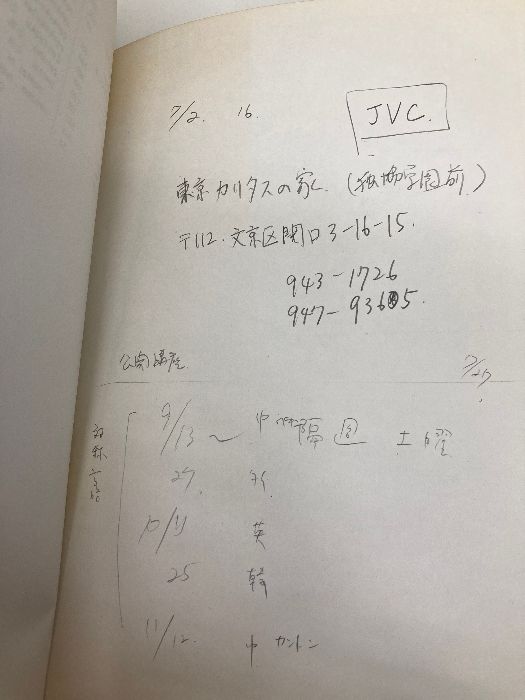 7/2. 16. JVC.
東京カリタスの家 (独協学園前)
〒112. 文京区関口3-16-15.
943-1726
947-9365.
公開講座 7/27
9/13〜 中 隔週 土曜
27.
10/11 英
25 韓
11/12. 中 カントン